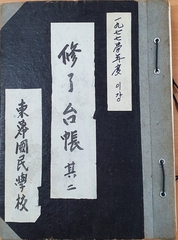 一九七七学年度 이상
修了台帳 其二
國民學校